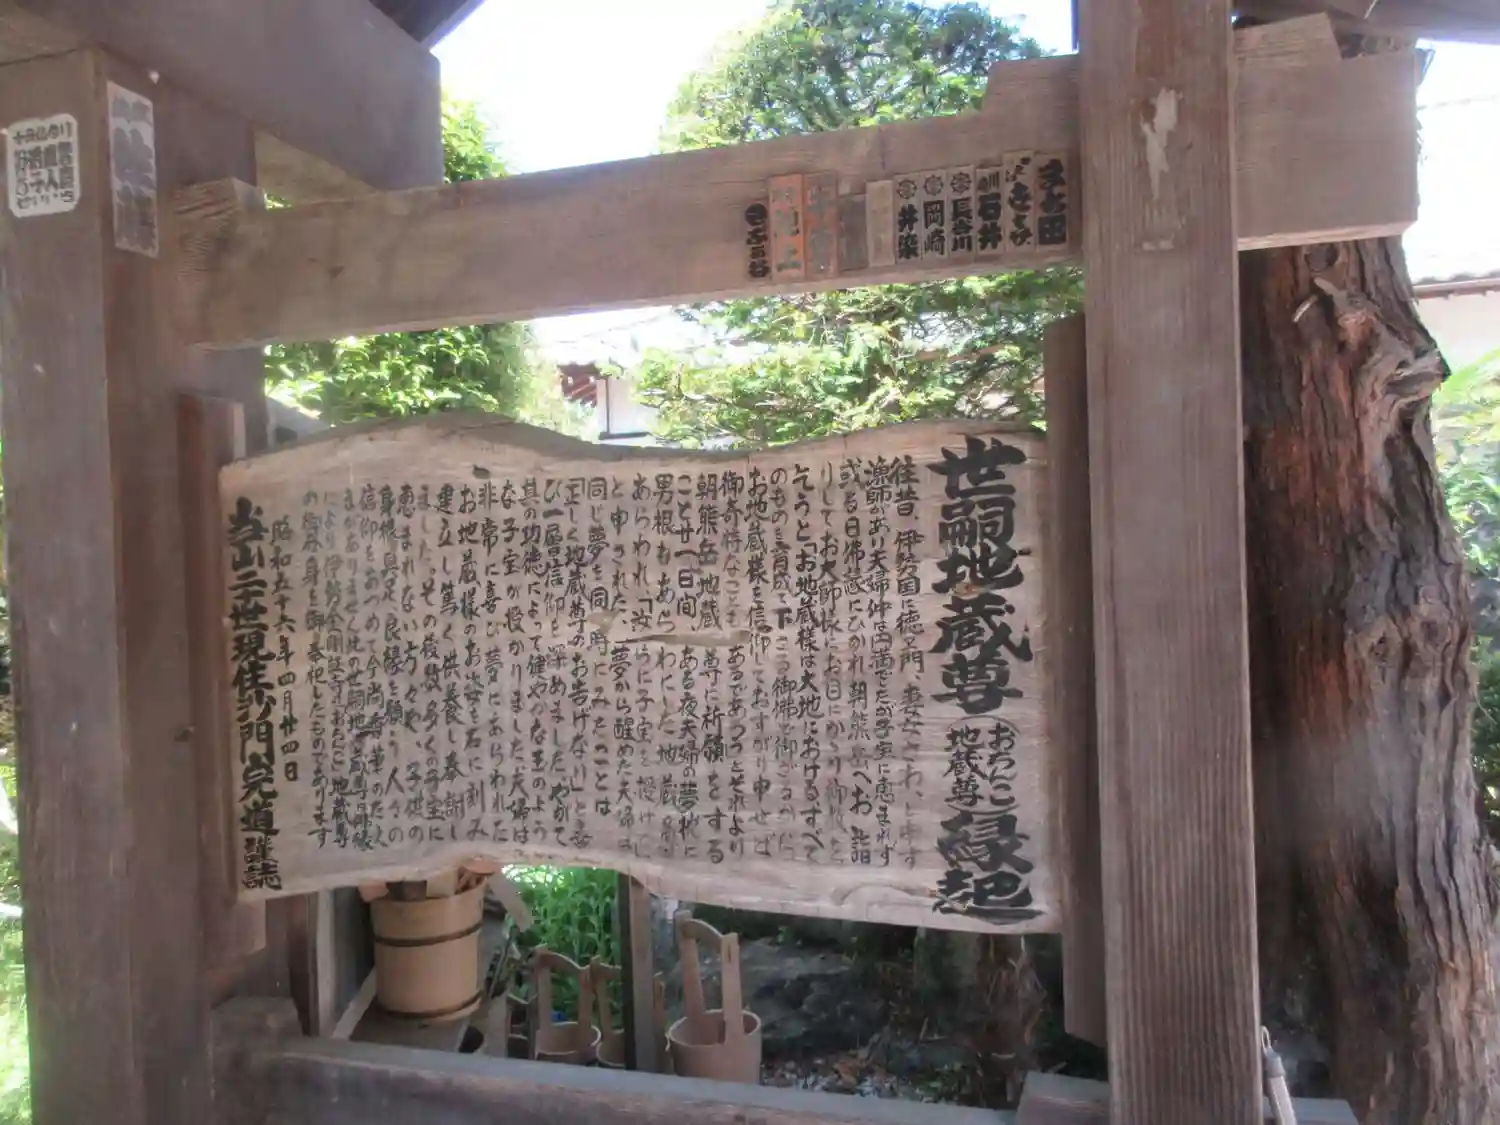 世嗣地蔵尊(おちんこ地蔵尊)縁起
往昔、伊勢国に徳又門、妻をさわ、と申す
漁師があり夫婦仲は円満でたが子宝に恵まれず
或る日佛縁にひかれ朝熊岳へお詣
りしてお大師様にお目にかゝり御教えを
乞うと「お地蔵様は大地におけるすべて
のものを育成て下さる御佛で御ざるから
お地蔵様を信仰しておすがり申せば
御奇特なことも あるであろうとそれより
朝熊岳 地蔵 尊に祈願をする
こと廿一日間、ある夜夫婦の夢枕に
男根もあらわにした地蔵尊が
あらわれ「汝らに子宝を授ける」
と申された、夢から醒めた夫婦は
同じ夢を同 時にみたことは
「正しく地蔵尊のお告げなり」と喜
び一層信仰を深めました、やがて
其の功徳によって健やかな玉のよう
な子宝が授かりました、夫婦は
非常に喜び夢にあらわれた
お地蔵様のお姿を石に刻み
建立し篤く供養し奉謝し
ました。その後数多くの子宝に
恵まれない方々や、子供の
身根具足、良縁を願う人々の
信仰をあつめて今尚香華のたえ
まがありません此の世嗣地蔵尊の御縁
により伊勢金剛證寺(おちんこ)地蔵尊
の御分身を御奉祀したものであります
昭和五十六年四月廿四日
当山二十世現住沙門完道謹誌
井染
岡崎
長谷川
石井